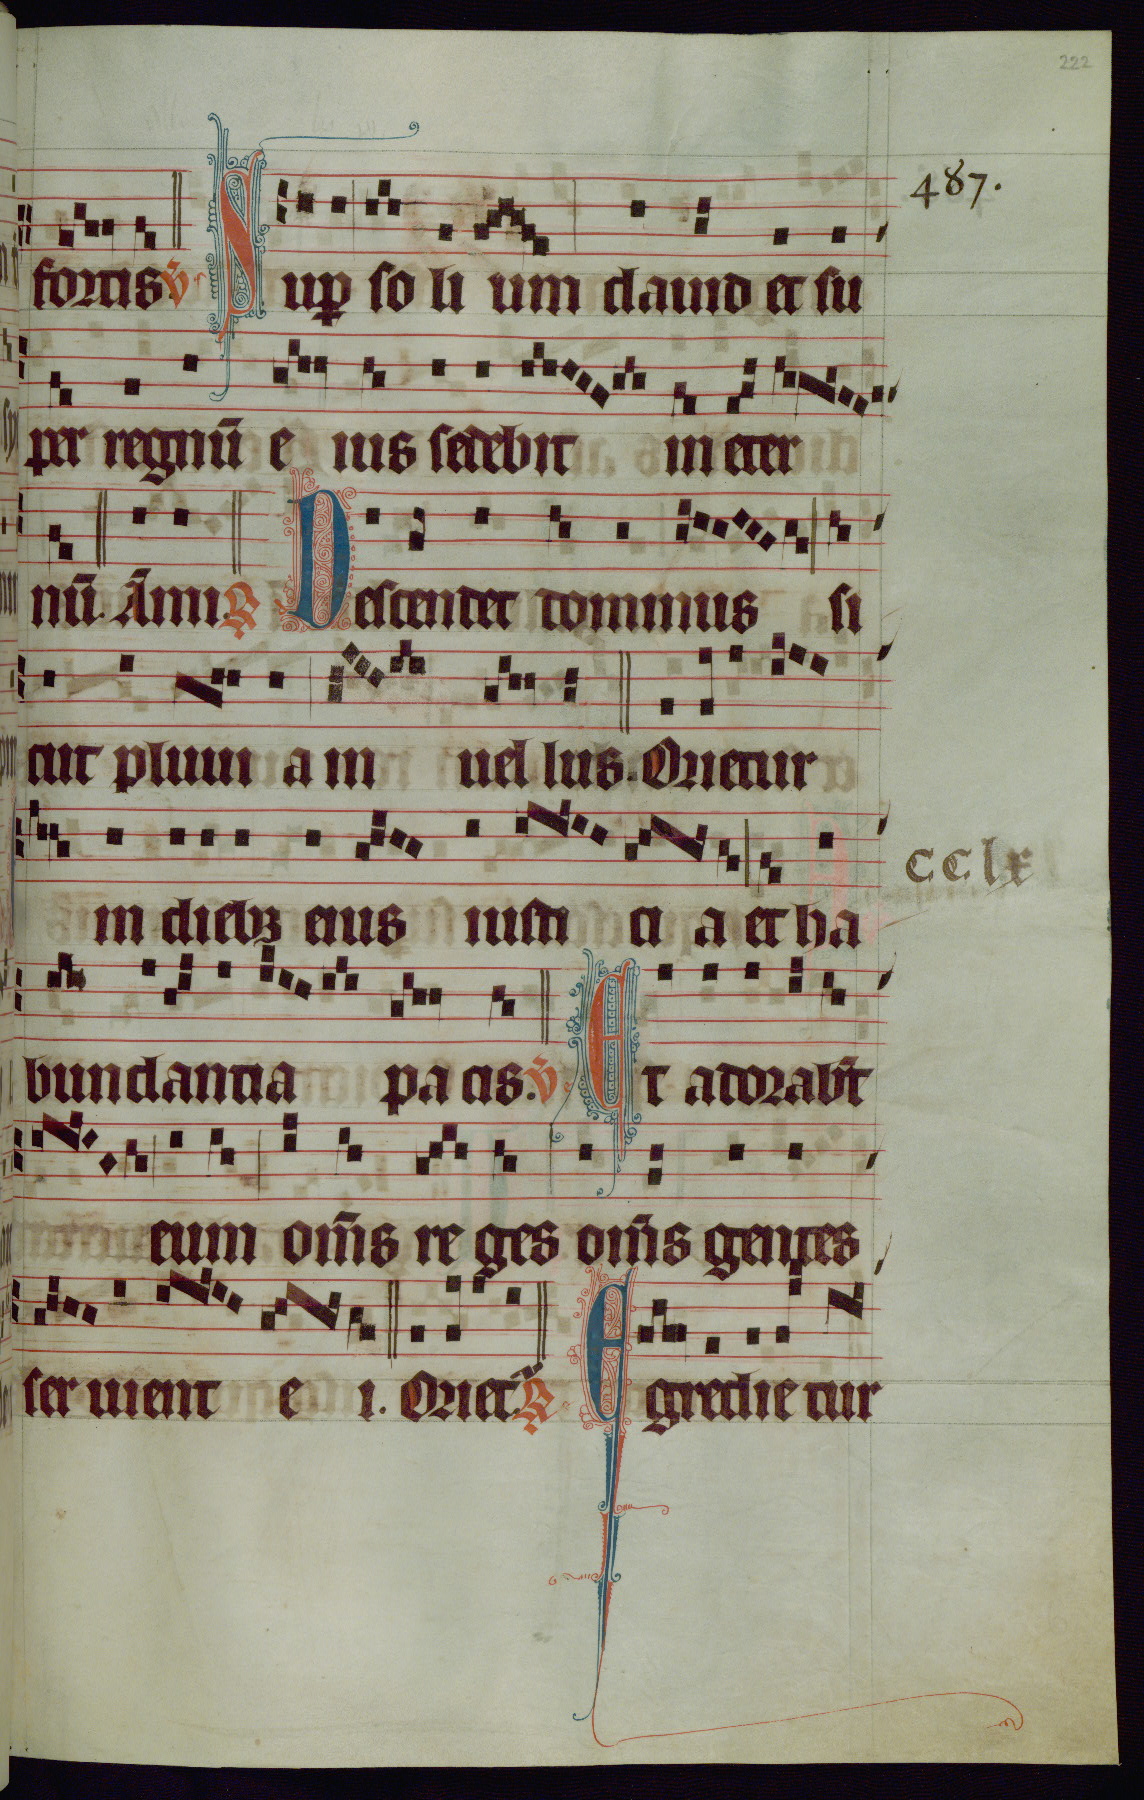 222
487.
fortis. ṽ. Sup so li um dauid et su
per regnū e ius sedebit in eter
nū. Āmi. R Descendet dominus si
cut pluui a in uel lus. Orietur
in diebꝫ eius iusti ci a et ha
cclx
bundantia pa cis. ṽ. Et adorabūt
eum om̄s re ges om̄s gentes
ser uient e i. Oriet̄. R Egredie tur